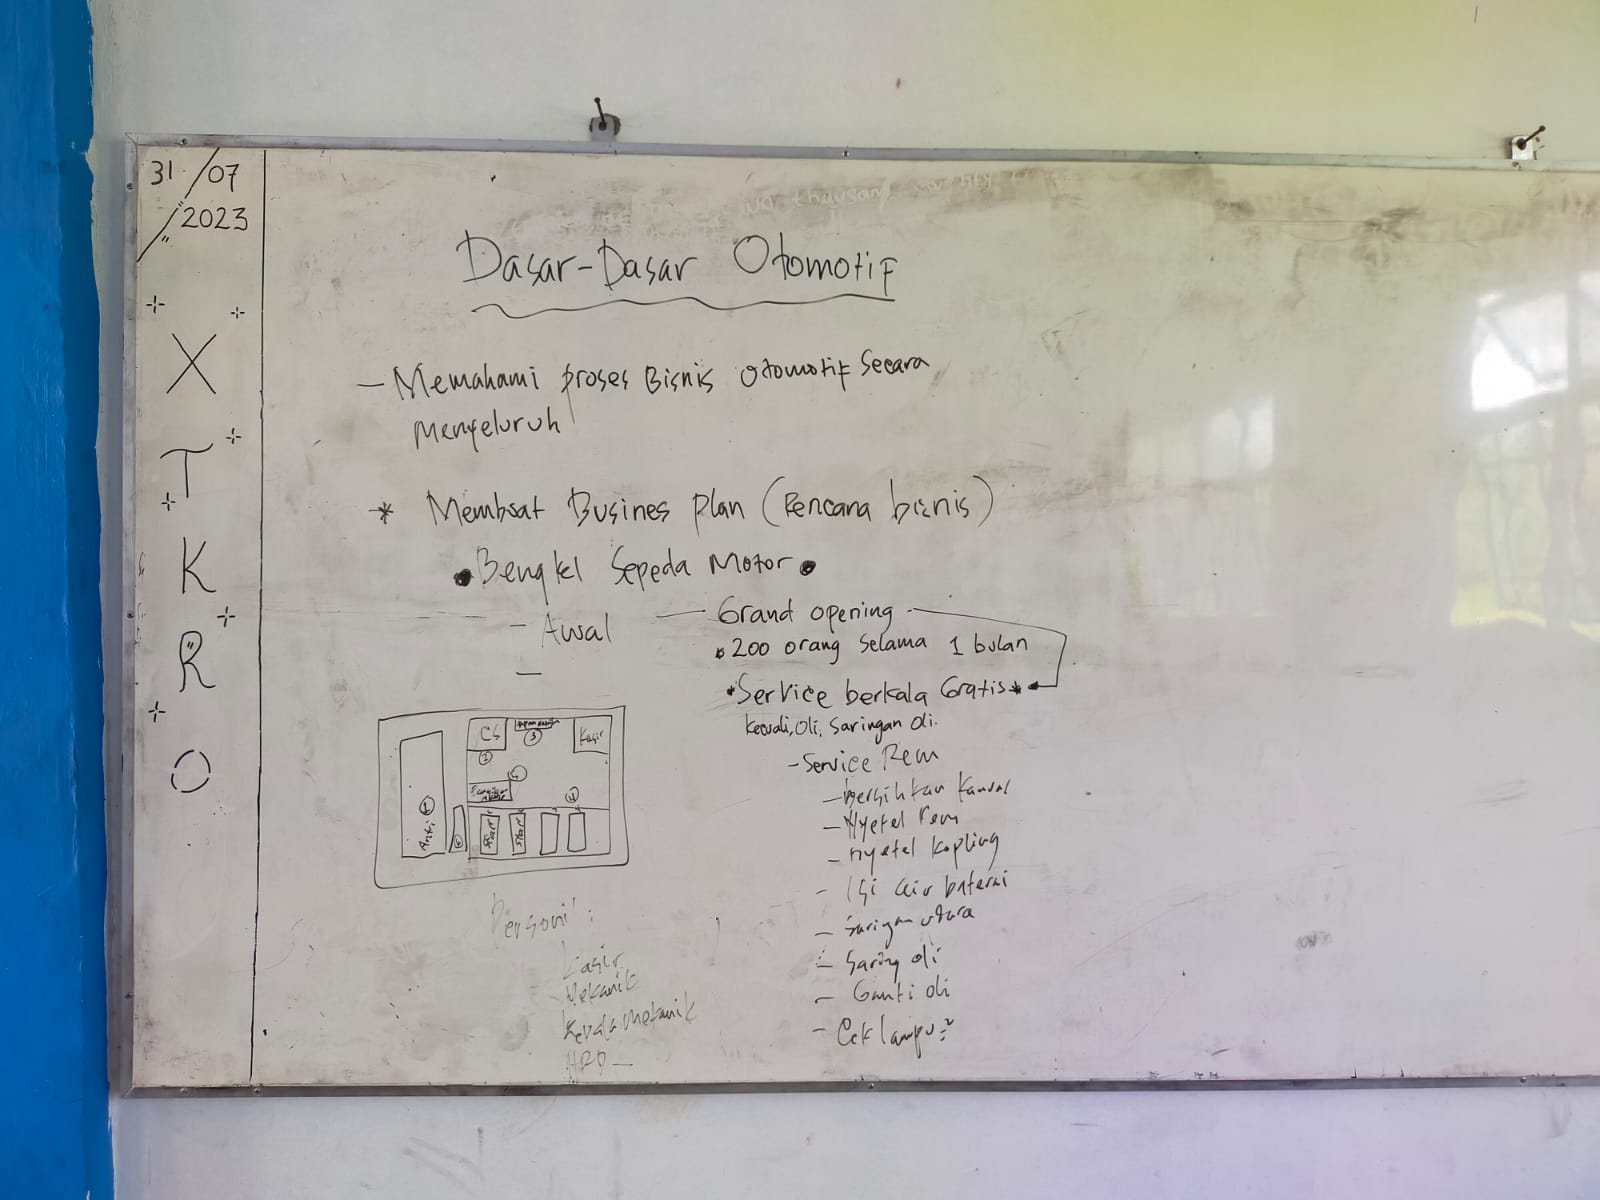 31/07
/2023
X
T
K
R
O
Dasar-Dasar Otomotif
- Memahami proses Bisnis Otomotif Secara
menyeluruh
* Membuat Busines plan (Rencana bisnis)
• Bengkel Sepeda Motor •
- Awal — Grand opening
-
• 200 orang selama 1 bulan
*Service berkala Gratis*
kecuali, Oli, Saringan Oli.
- Service Rem
- Bersihkan Kanvas
- Nyetel Rem
- nyetel kopling
- Isi air baterai
- Saringan udara
- Saring oli
- Ganti oli
- Cek lampu²
CS
2
3
Kasir
4
Antri 1
Start
Start
Personil :
Kasir
Mekanik
Kepala Mekanik
HRD —